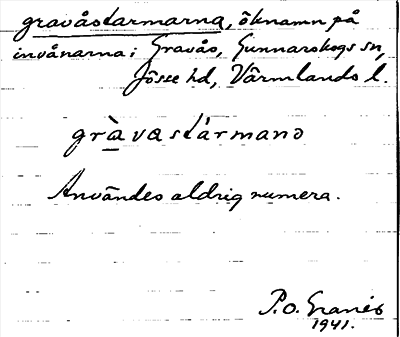 gravåstarmarna, öknamn på
invånarna i Gravås, Gunnarskogs sn,
Jösse hd, Värmlands l.
gràvastármanə
Användes aldrig numera.
P.O. Granés
1941.